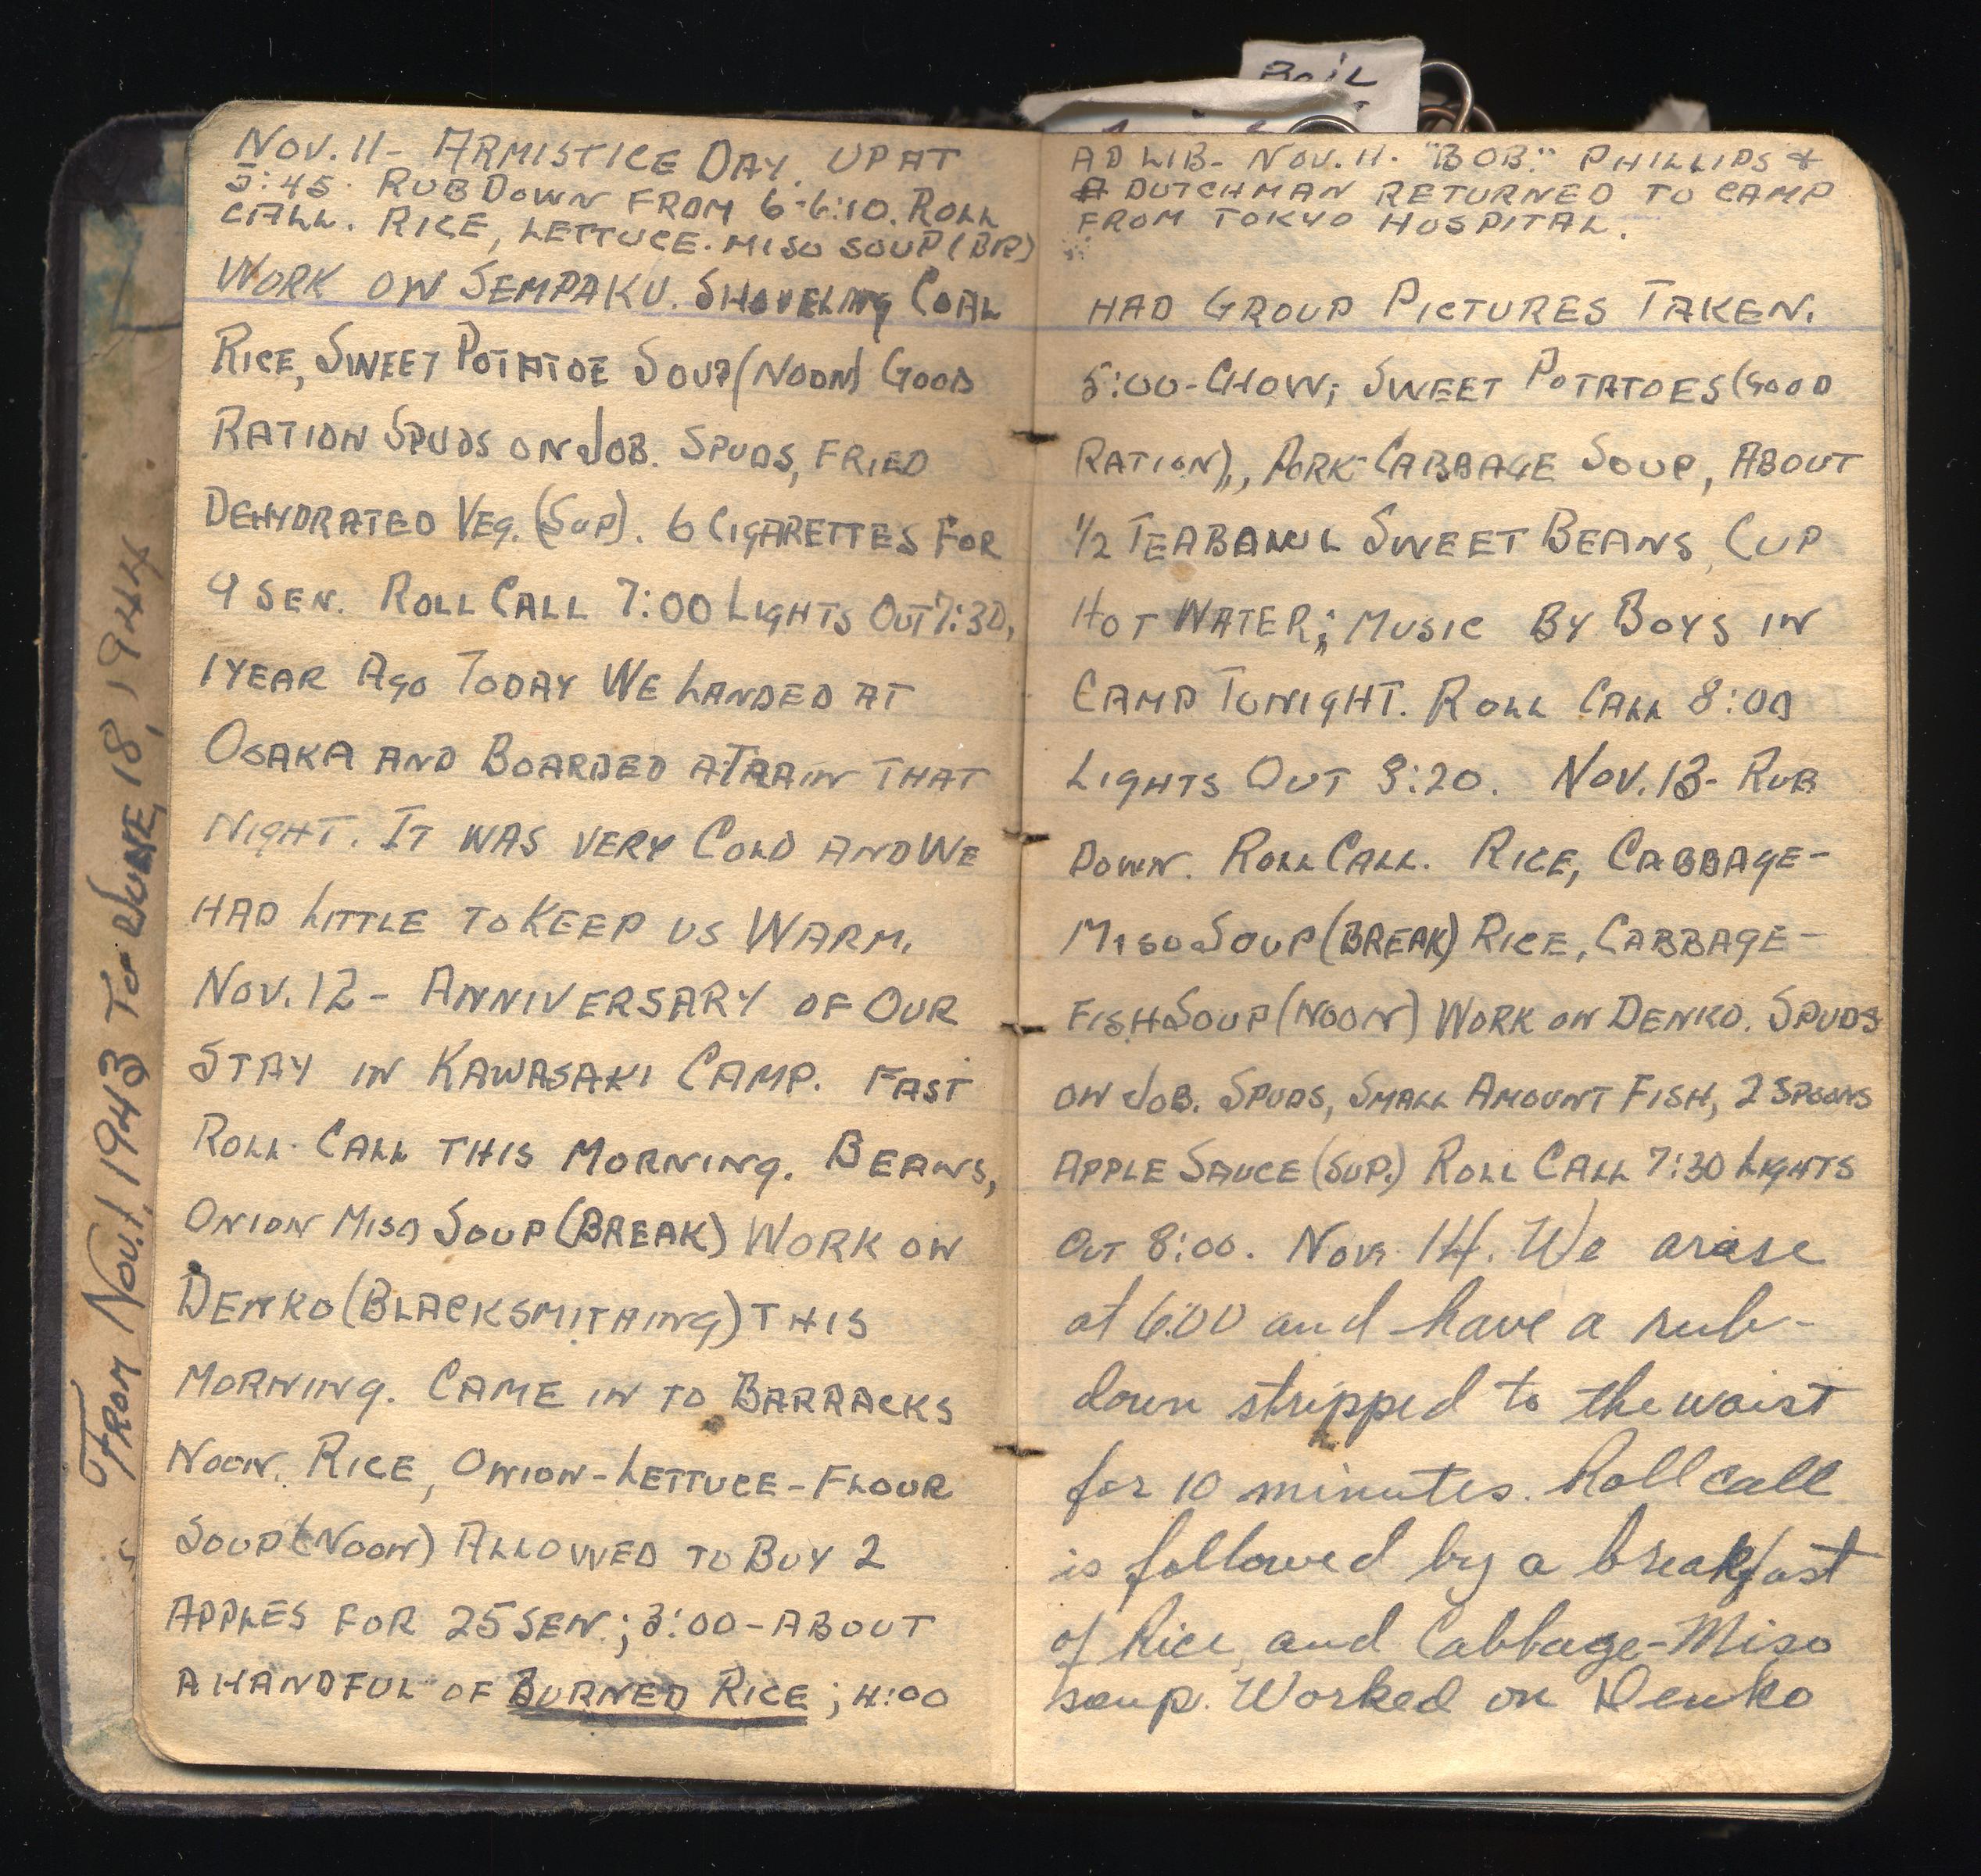 From Nov. 1, 1943 To June 18, 1944
Nov. 11 - Armistice Day. Up at
5:45. Rub Down From 6-6:10. Roll
Call. Rice, Lettuce. Miso Soup (BR)
Work on Sempaku. Shoveling Coal
Rice, Sweet Potatoe Soup (Noon) Good
Ration Spuds on Job. Spuds, Fried
Dehydrated Veg. (Sup). 6 Cigarettes For
9 Sen. Roll Call 7:00 Lights Out 7:30,
1 Year Ago Today We Landed at
Osaka and Boarded a Train that
Night. It was very Cold and We
had Little to Keep us Warm.
Nov. 12 - Anniversary of Our
Stay in Kawasaki Camp. Fast
Roll Call this Morning. Beans,
Onion Miso Soup (Break) Work on
Denko (Blacksmithing) this
Morning. Came in to Barracks
Noon. Rice, Onion-Lettuce-Flour
Soup (Noon) Allowed to Buy 2
Apples for 25 Sen.; 3:00 - About
a handful of Burned Rice; 4:00
Boil
Ad Lib - Nov. 11. "Bob." Phillips &
a Dutchman returned to camp
from Tokyo Hospital.
had Group Pictures Taken.
5:00 - Chow; Sweet Potatoes (Good
Ration),, Pork-Cabbage Soup, about
1/2 Teabowl Sweet Beans, Cup
Hot Water; Music By Boys in
Camp Tonight. Roll Call 8:00
Lights Out 8:20. Nov. 13 - Rub
Down. Roll Call. Rice, Cabbage-
Miso Soup (Break) Rice, Cabbage-
Fish Soup (Noon) Work on Denko. Spuds
on Job. Spuds, Small Amount Fish, 2 Spoons
Apple Sauce (Sup.) Roll Call 7:30 Lights
Out 8:00. Nov. 14. We arise
at 6:00 and have a rub-
down stripped to the waist
for 10 minutes. Roll call
is followed by a breakfast
of Rice, and Cabbage-Miso
soup. Worked on Denko